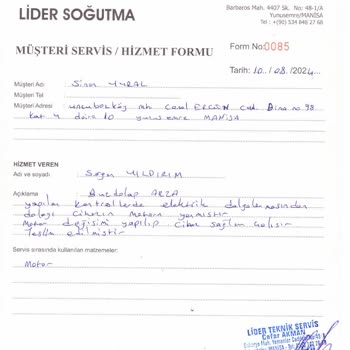 LİDER SOĞUTMA
Barbaros Mah. 4407 Sk. No: 48-1/A
Yunusemre/MANİSA
Tel : +(90) 534 848 27 68
MÜŞTERİ SERVİS / HİZMET FORMU
Form No:0085
Tarih: 10../08./2024....
Müşteri Adı : Sinan VURAL
Müşteri Tel :
Müşteri Adresi : uncubozköy mh Cemal ERGÜN Cad. Bina no 98
kat 4 daire 10 yunus emre MANİSA
HİZMET VEREN
Adı ve soyadı : YILDIRIM
Açıklama : Buzdolap ARZA
yapılan kontrollerde elektrik dalgalanmasından
dolayı cihazın motoru yanmıştır
Motor değişimi yapılıp cihaz sağlam
Teslim edilmiştir
Servis sırasında kullanılan malzemeler:
Motor
LİDER TEKNİK SERVİS
Cafer AKMAN